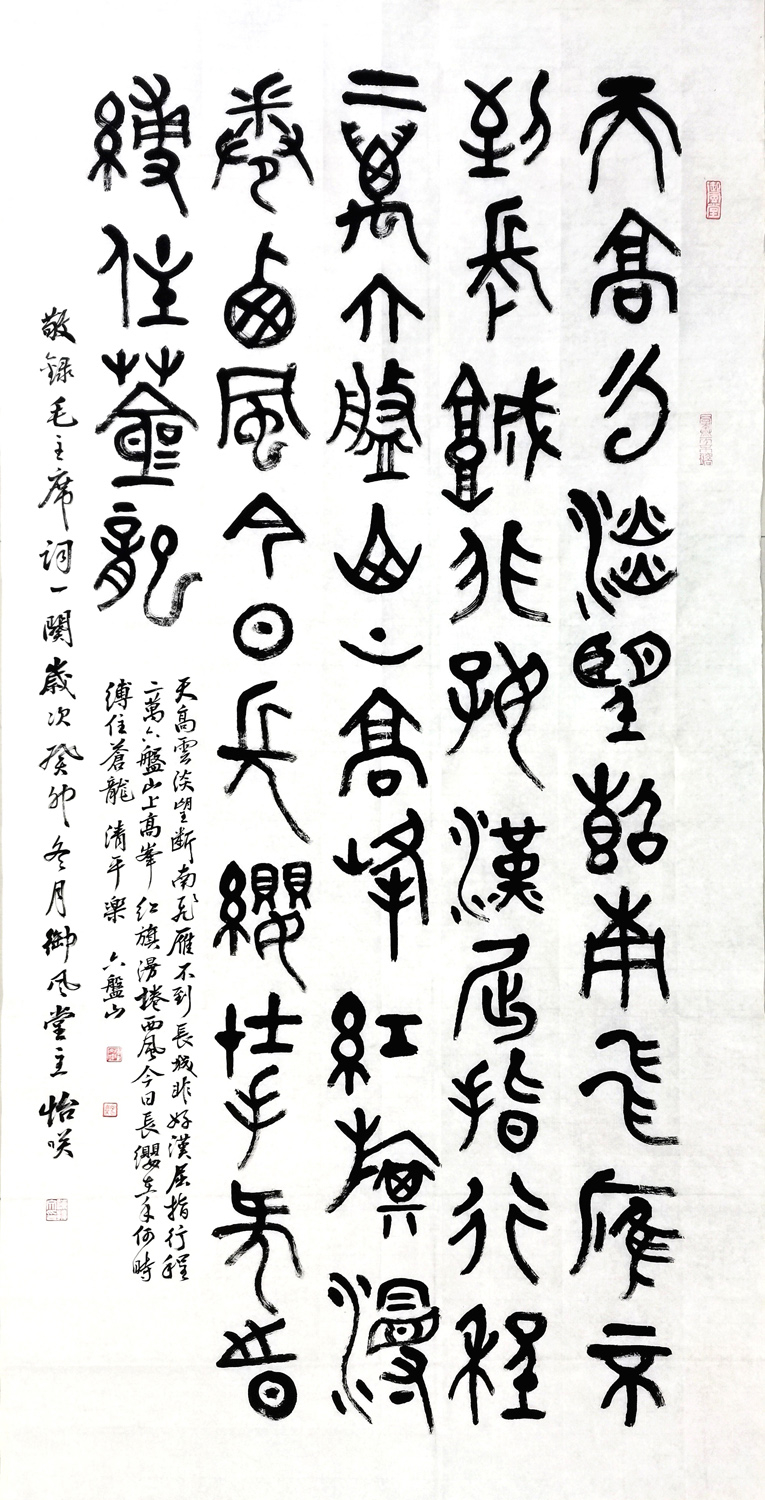 天高云淡望斷南飛雁不
到長城非好漢屈指行程
二萬六盤山上高峰紅旗漫
卷西風今日長纓在手何時
縛住蒼龍
天高雲淡望断南飛雁不到長城非好漢屈指行程
二萬六盤山上高峯红旗漫捲西風今日長纓在手何時
縛住蒼龍 清平樂 六盤山
敬錄毛主席詞一闋歲次癸卯冬月御風堂主怡咲